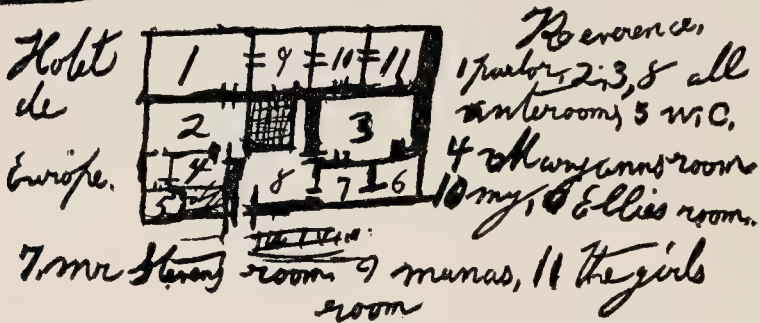 Hotel
de
Europe.
1 9 10 11
2 3
4 8 7 6
5
Reverence,
1 parlor, 2, 3, 8 all
anterooms, 5 W.C.
4 Maryanns room
10 my, 6 Ellies room.
7. mr Stevens room 9 mamas, 11 the girls
room